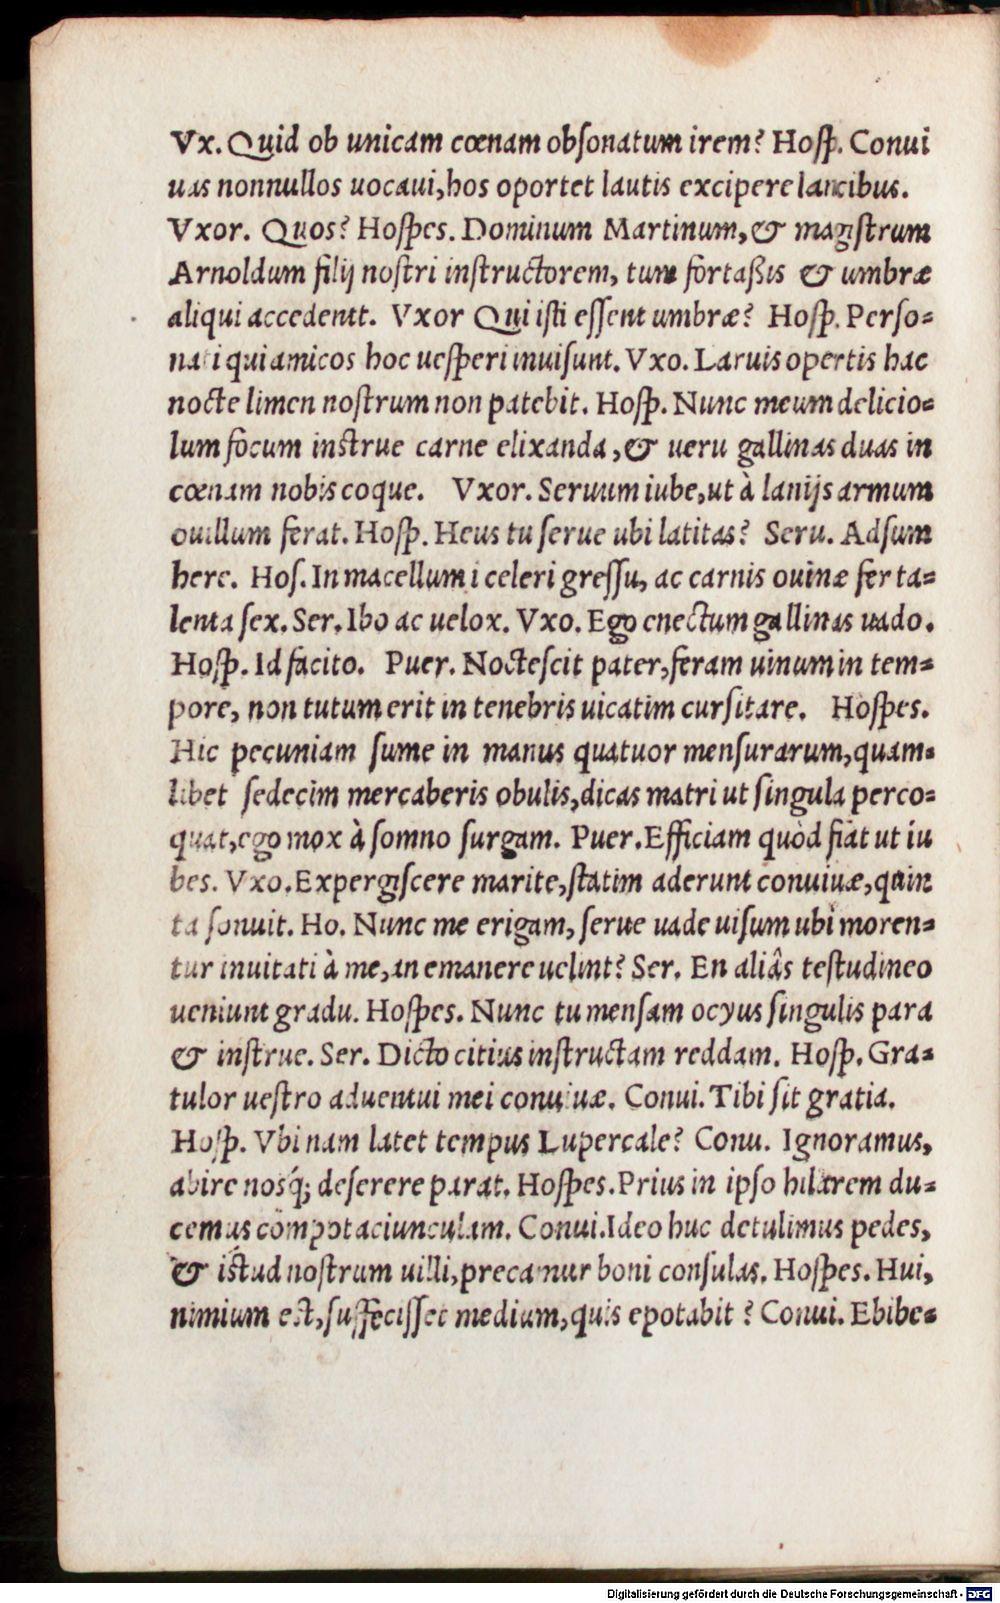 Vx. Quid ob unicam cœnam obſonatum irem? Hoſp. Conui
uas nonnullos uocaui, hos oportet lautis excipere lancibus.
Vxor. Quos? Hoſpes. Dominum Martinum, & magiſtrum
Arnoldum filij noſtri inſtructorem, tum fortaßis & umbræ
aliqui accedentt. Vxor Qui iſti eſſent umbræ? Hoſp. Perſo-
nati qui amicos hoc ueſperi inuiſunt. Vxo. Laruis opertis hac
nocte limen noſtrum non patebit. Hoſp. Nunc meum delicio-
lum focum inſtrue carne elixanda, & ueru gallinas duas in
cœnam nobis coque. Vxor. Seruum iube, ut à lanijs armum
ouillum ferat. Hoſp. Heus tu ſerue ubi latitas? Seru. Adſum
here. Hoſ. In macellum i celeri greſſu, ac carnis ouinæ fer ta-
lenta ſex. Ser. Ibo ac uelox. Vxo. Ego enectum gallinas uado.
Hoſp. Id facito. Puer. Nocteſcit pater, feram uinum in tem-
pore, non tutum erit in tenebris uicatim curſitare. Hoſpes.
Hic pecuniam ſume in manus quatuor menſurarum, quam-
libet ſedecim mercaberis obulis, dicas matri ut ſingula perco-
quat, ego mox à ſomno ſurgam. Puer. Efficiam quòd fiat ut iu
bes. Vxo. Expergiſcere marite, ſtatim aderunt conuiuæ, quin
ta ſonuit. Ho. Nunc me erigam, ſerue uade uiſum ubi moren-
tur inuitati à me, an emanere uelint? Ser. En aliâs teſtudineo
ueniunt gradu. Hoſpes. Nunc tu menſam ocyus ſingulis para
& inſtrue. Ser. Dicto citius inſtructam reddam. Hoſp. Gra-
tulor ueſtro aduentui mei conuiuæ. Conui. Tibi ſit gratia.
Hoſp. Vbi nam latet tempus Lupercale? Conu. Ignoramus,
abire nosq́; deſerere parat. Hoſpes. Prius in ipſo hilarem du-
cemus compotaciunculam. Conui. Ideo huc detulimus pedes,
& iſtud noſtrum uilli, precamur boni conſulas. Hoſpes. Hui,
nimium eſt, ſuffeciſſet medium, quis epotabit? Conui. Ebibe-
Digitalisierung gefördert durch die Deutsche Forschungsgemeinschaft - DFG